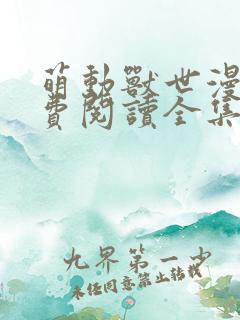 萌動獸世漫
費閱讀全集
九界第一少
未經同意禁止轉載